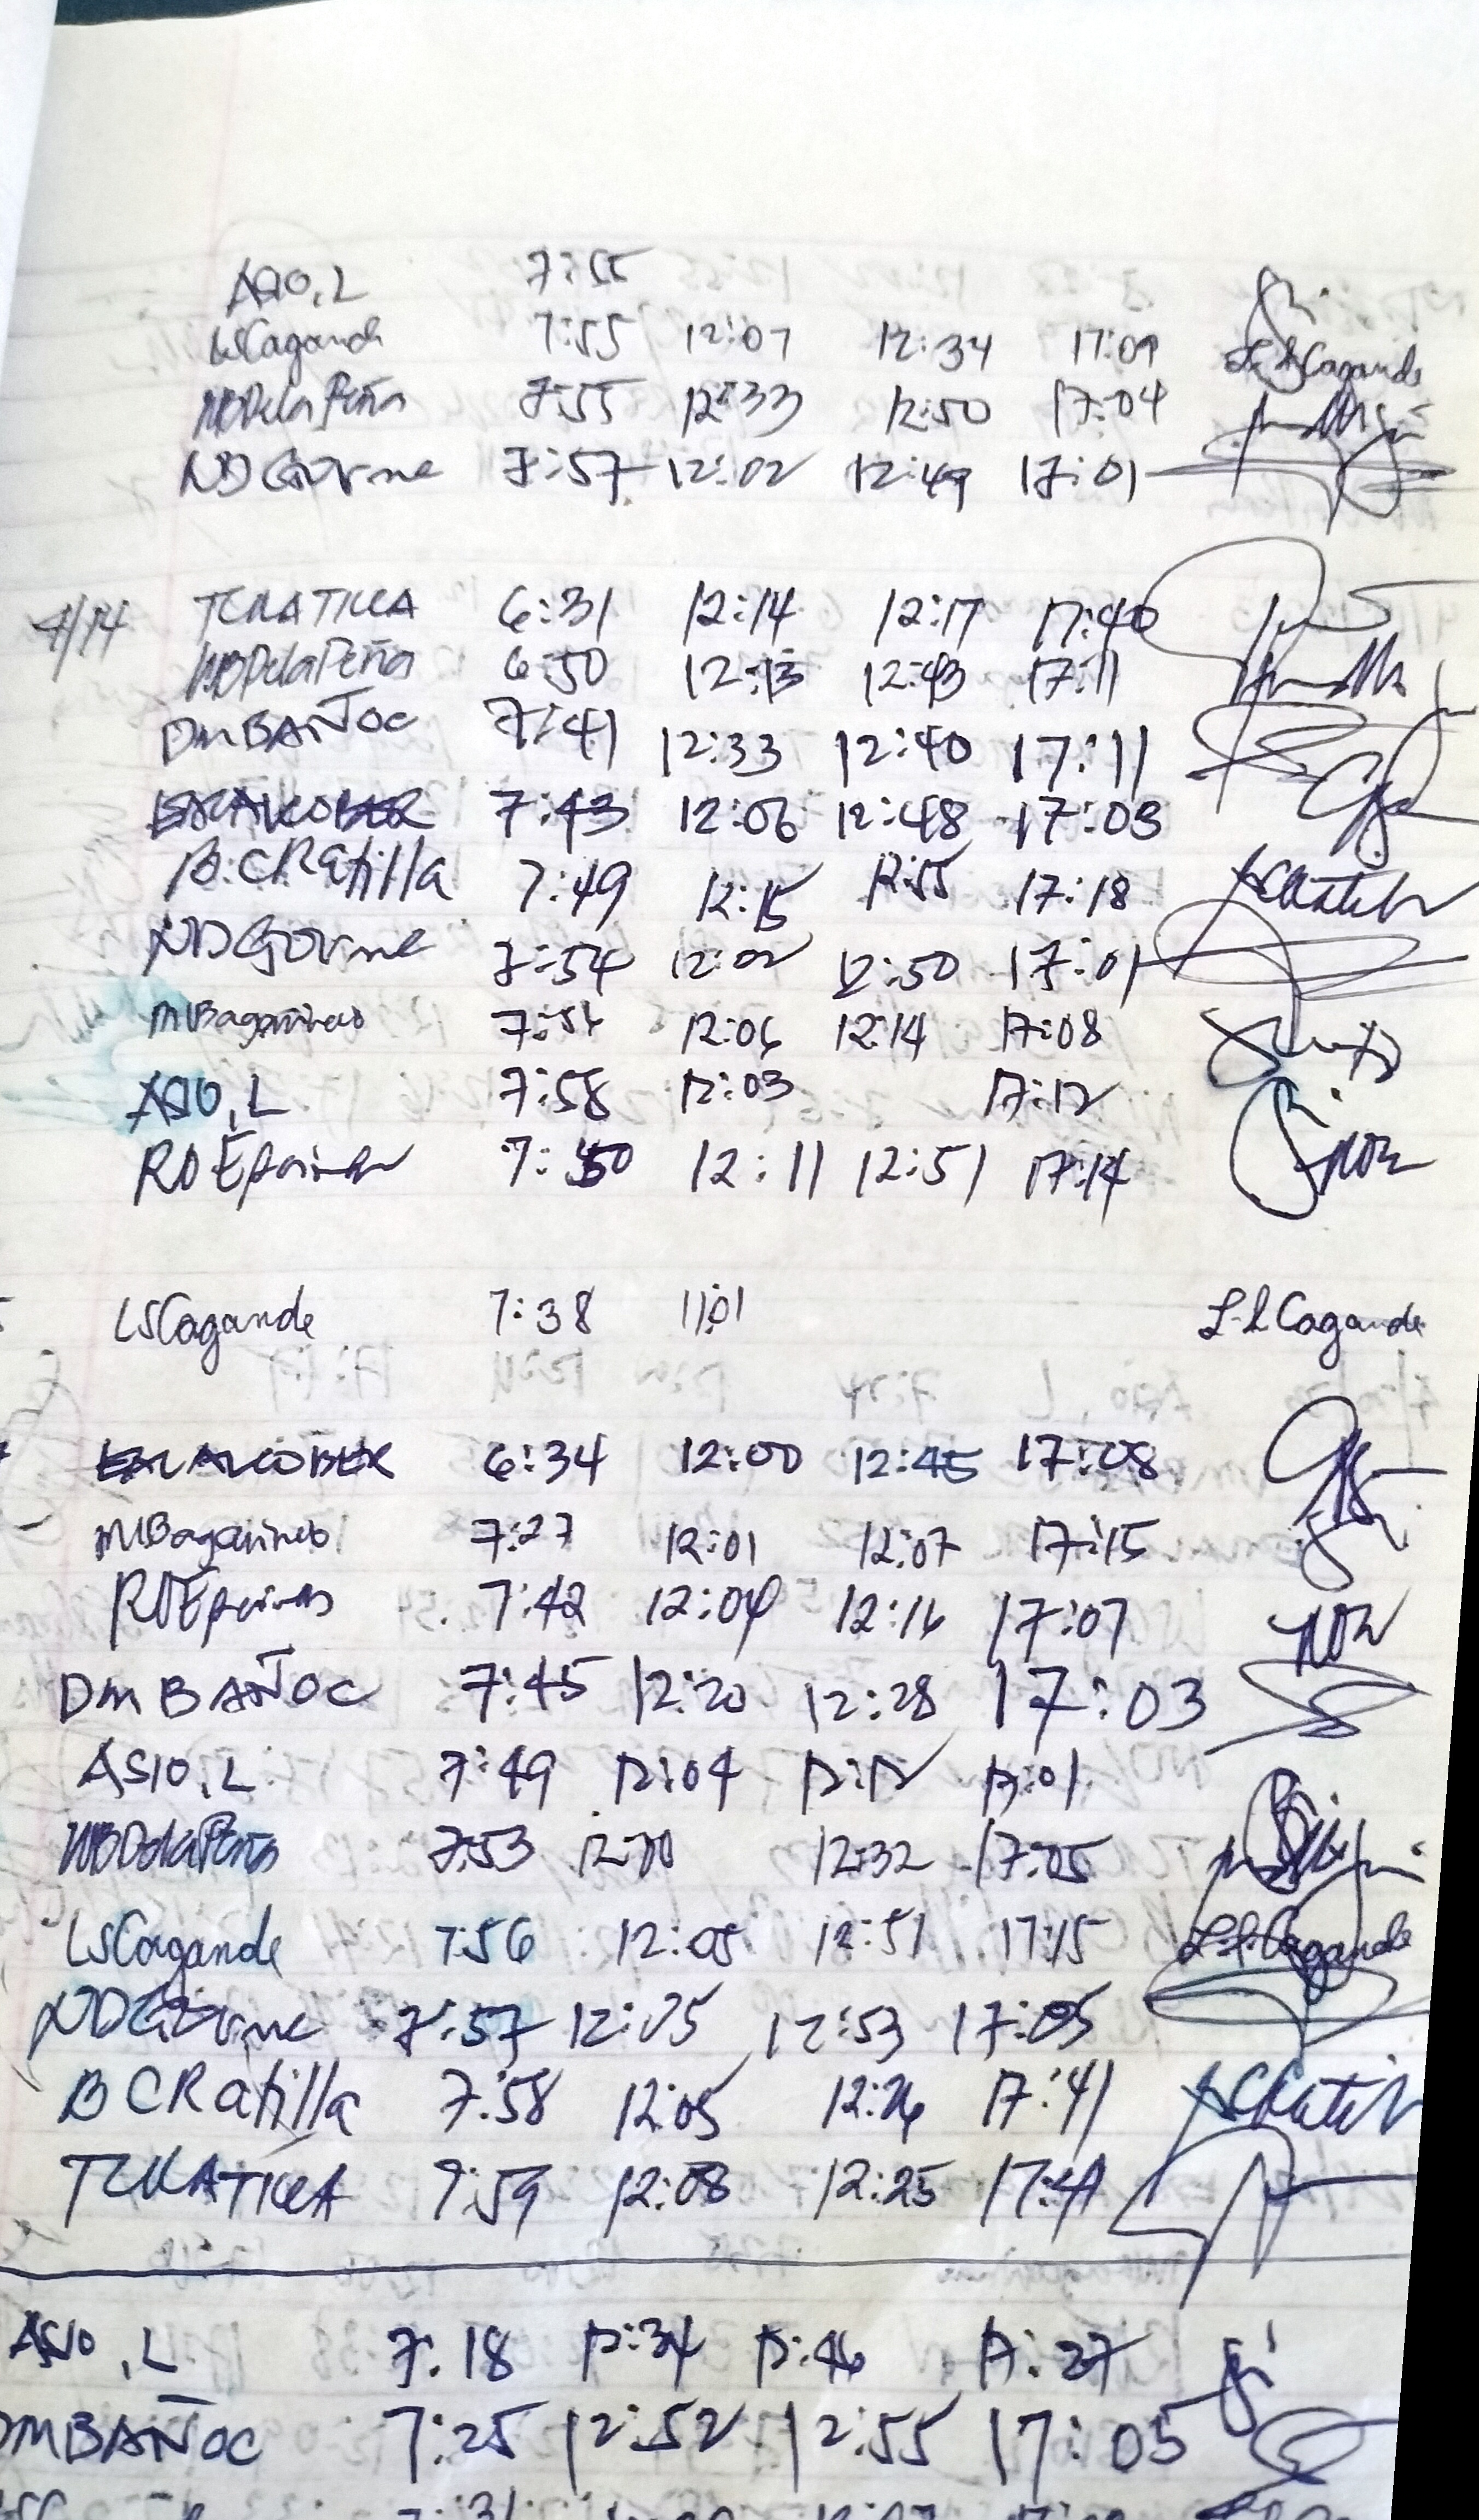 Asio, L 7:55
LSCagande 7:55 12:07 12:34 17:09 L.S.Cagande
NBDelaPeña 7:55 12:33 12:50 17:04
NDGorme 7:57 12:02 12:49 17:01
4/14 TCRATILLA 6:31 12:14 12:17 17:40
NBDelaPeña 6:50 12:13 12:43 17:11
DMBAÑOC 7:41 12:33 12:40 17:11
ALCOBER 7:43 12:06 12:48 17:03
B.CRatilla 7:49 12:15 12:55 17:18 BCRatilla
NDGorme 7:54 12:02 12:50 17:01
MBagarinao 12:06 12:14 17:08
ASIO, L 7:58 12:03 17:12
RDEspinas 7:50 12:11 12:51 17:14
LSCagande 7:38 11:01 L.S.Cagande
ALCOBER 6:34 12:00 12:45 17:08
MBagarinao 7:27 12:01 12:07 17:15
RDEspinas 7:42 12:04 12:16 17:07
DMBAÑOC 7:45 12:20 12:28 17:03
ASIO, L 7:49 12:04 12:12 17:01
NBDelaPeña 7:53 12:32 17:05
LSCagande 7:56 12:05 12:51 17:15 L.S.Cagande
NDGorme 7:57 12:05 12:53 17:05
BCRatilla 7:58 12:05 12:26 17:41 BCRatilla
TCRATILLA 7:59 12:08 12:25 17:41
ASIO, L 7:18 12:34 12:46 17:27
DMBAÑOC 7:25 12:52 12:55 17:05